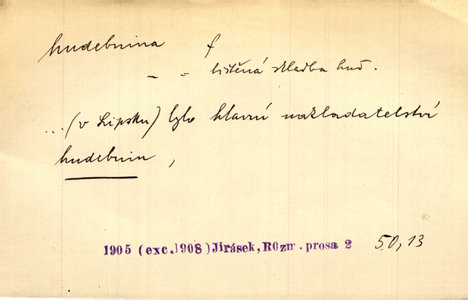 hudebnina f
– = tištěná skladba hud.
...(v Lipsku) bylo hlavní nakladatelství
hudebnin,
1905 (exc.1908) Jirásek, Rozm. prosa 2 50,13